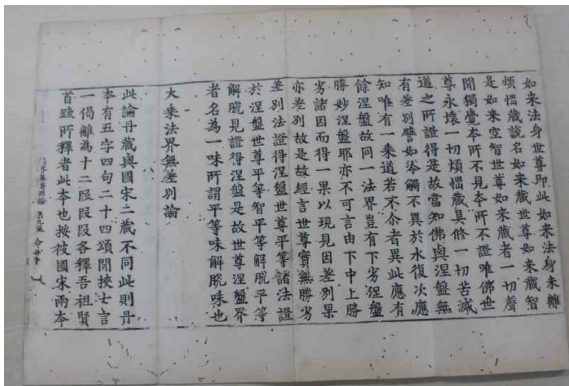 如来法身世尊即此如来法身未離
煩惱藏說名如来藏世尊如来藏智
是如来空智世尊如来藏者一切聲
聞獨覺本所不見本所不證唯佛世
尊永壞一切煩惱藏具修一切苦滅
道之所證得是故當知佛與涅盤無
有差別譬如冷觸不異於水復次應
知唯有一乘道若不尒者異此應有
餘涅盤故同一法界豈有下劣涅盤
勝妙涅盤耶亦不可言由下中上勝
劣諸因而得一果以現見因差別果
亦差別故是故經言世尊實無勝劣
差別法證得涅盤世尊平等諸法證
於涅盤世尊平等智平等解脫平等
解脫見證得涅盤是故世尊涅盤界
者名為一味所謂平等味解脫味也
大乘法界無差別論
此論丹藏與國宋二藏不同此則丹
本有五字四句二十四頌間挾七言
一偈離為十二段段段各釋吾祖賢
首疏所釋者此本也按彼國宋兩本